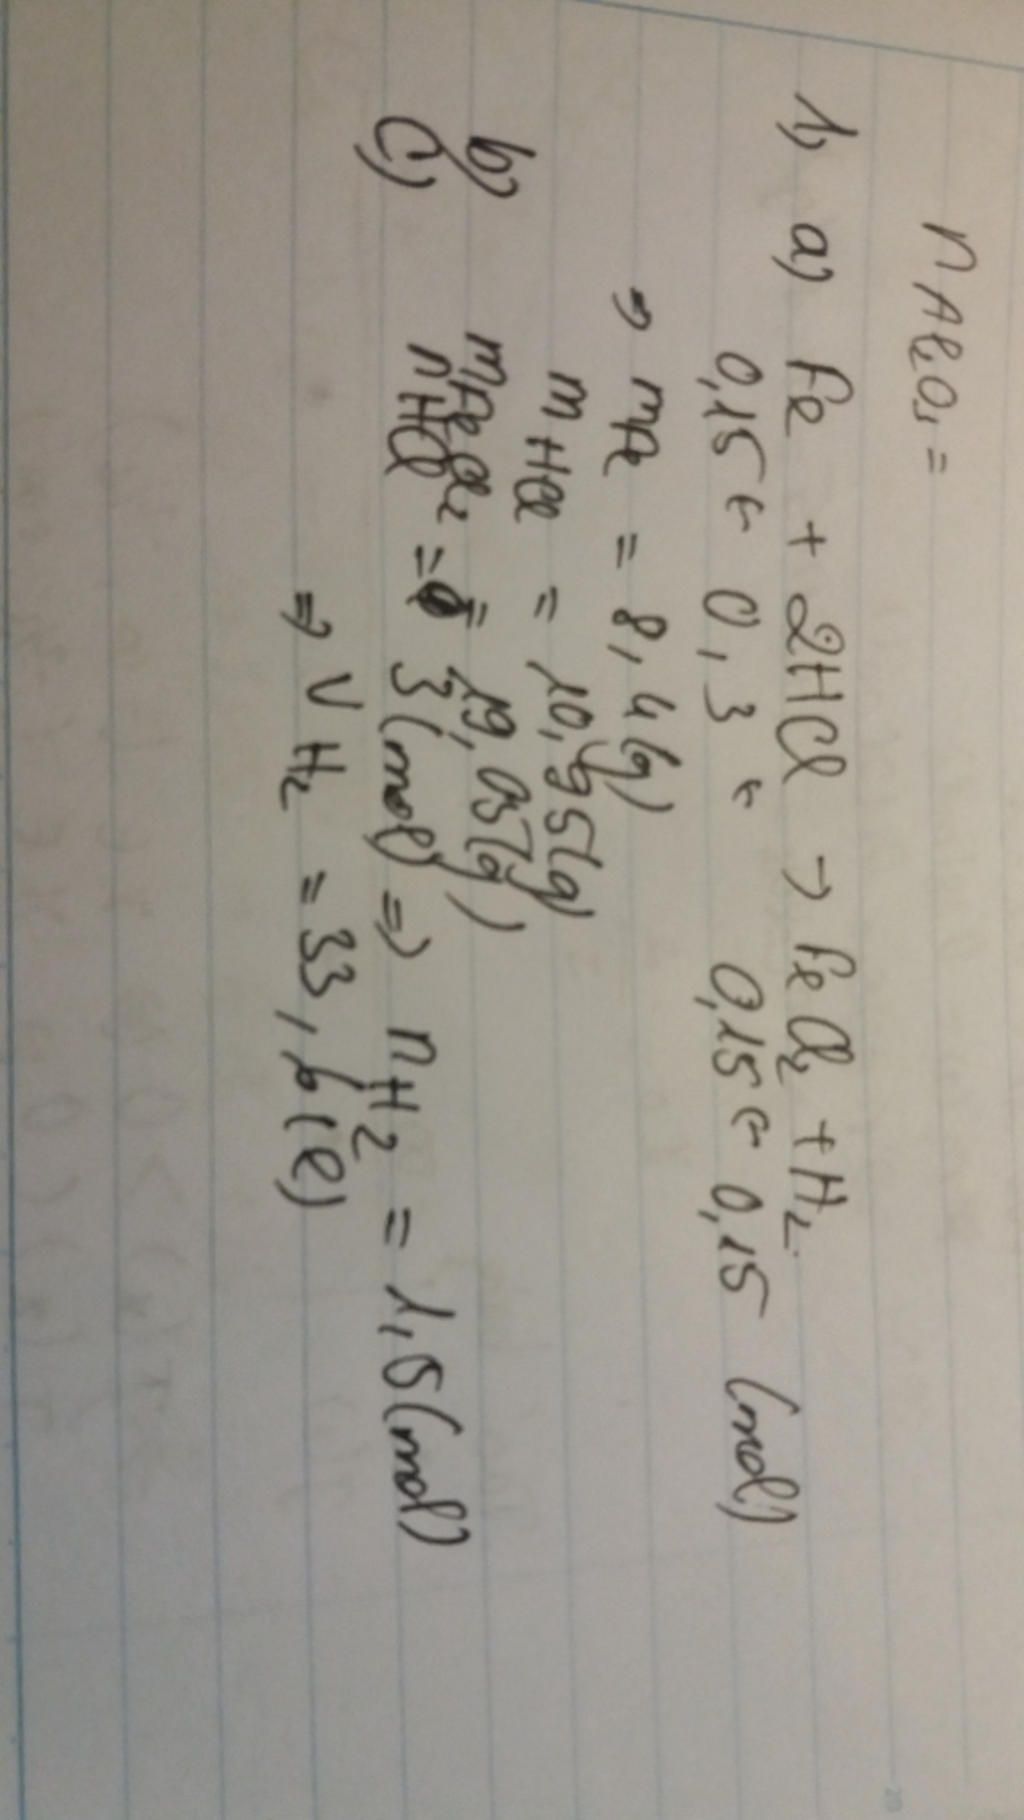 n Al₂O₃ =
1, a) Fe + 2HCl → FeCl₂ + H₂
0,15 ← 0,3 ← 0,15 ← 0,15 (mol)
⇒ mFe = 8,4(g)
m HCl = 10,95(g)
b) mFeCl₂ = 19,05(g)
c) nHCl = 3(mol) ⇒ nH₂ = 1,5(mol)
⇒ V H₂ = 33,6(l)